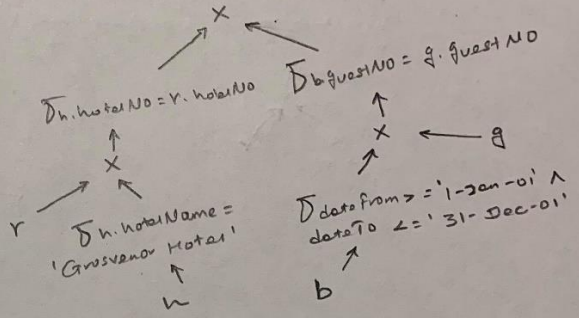 ×
σh.hotelNo = r.hotelNo
σb.guestNO = g.guestNO
×
×
g
r
σh.hotelName =
'Grosvenor Hotel'
σdateFrom >= '1-Jan-01' ∧
dateTo <= '31-Dec-01'
h
b